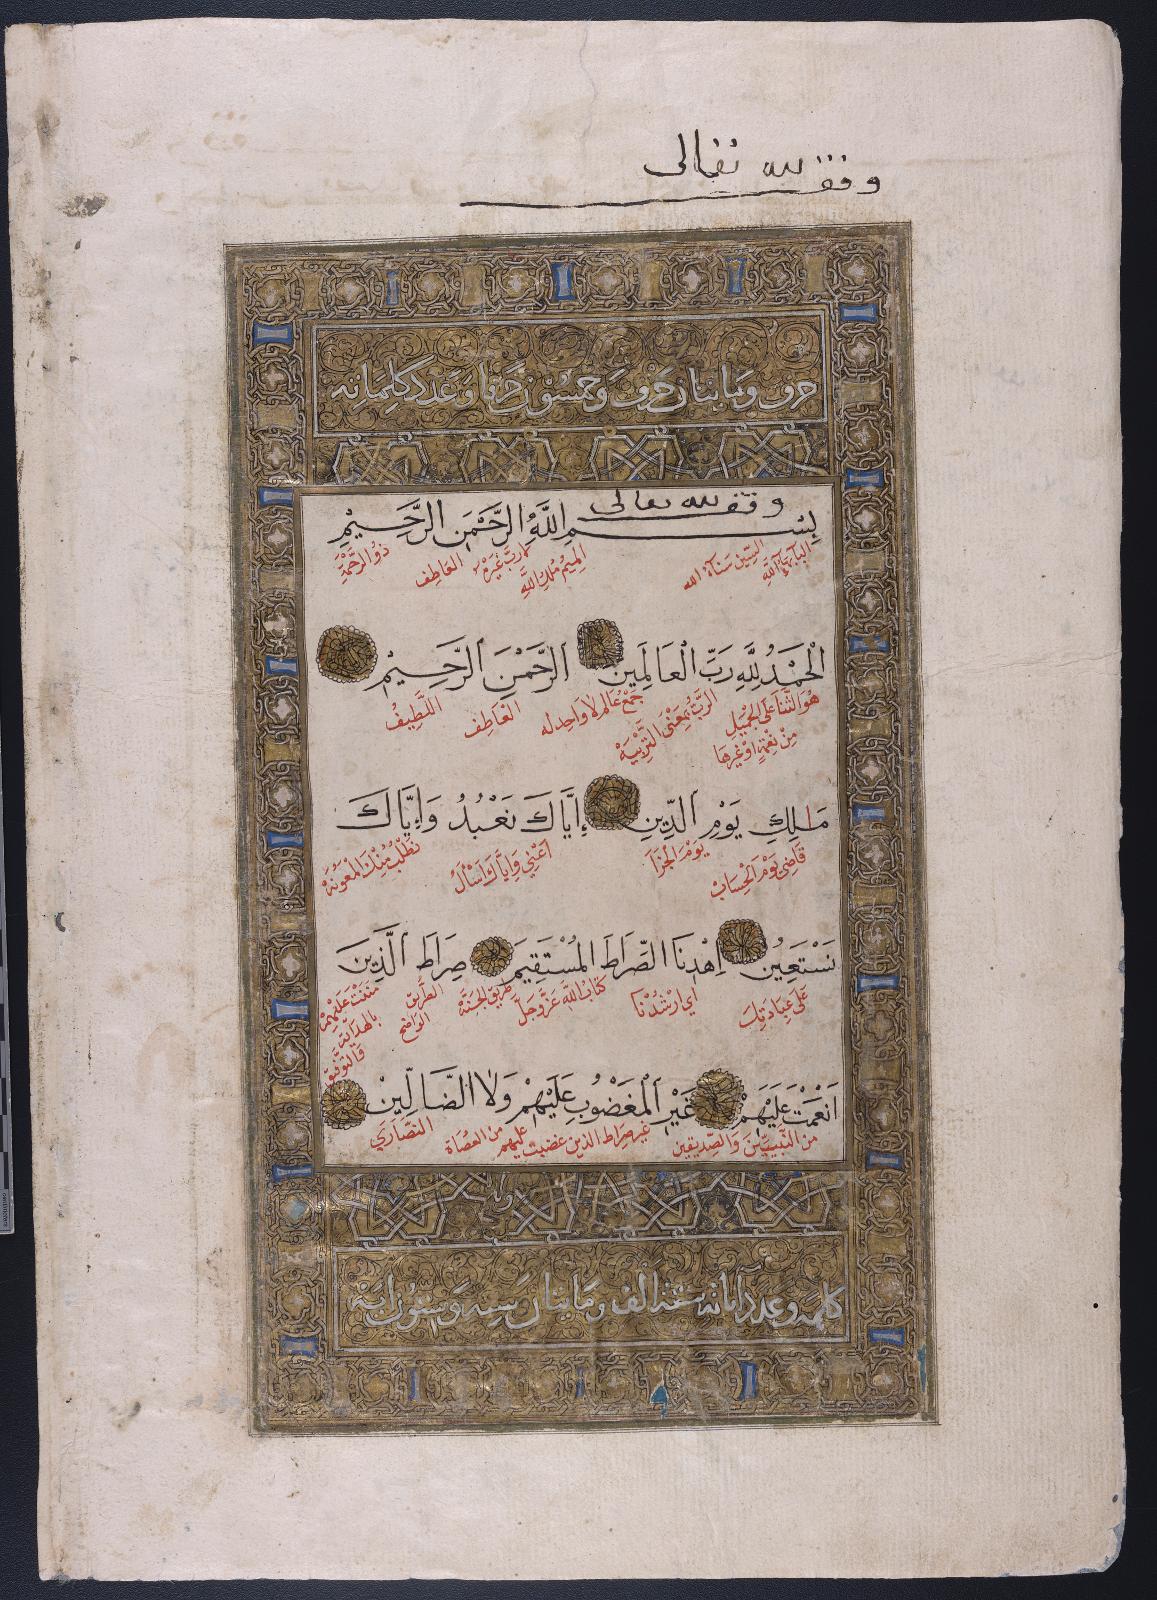 وقف لله تعالى
حرف ومايتان حرف وخمسون حرفا وعدد كلماته
وقف لله تعالى
بِسْمِ اللَّهِ الرَّحْمَنِ الرَّحِيمِ
البآء بهآء الله السين سنآء الله الميم ملك الله العاطف ذو الرحمة
الْحَمْدُ لِلَّهِ رَبِّ الْعَالَمِينَ الرَّحْمَنِ الرَّحِيمِ
هو الثنا على الجميل الرب بمعنى التربيه جمع عالم لا واحد له العاطف اللطيف
من نعمة او غيرها
مَلِكِ يَوْمِ الدِّينِ إِيَّاكَ نَعْبُدُ وَإِيَّاكَ
قاضي يوم الحساب يوم الجزآ اعني واياك اسأل نطلب منك المعونه
نَسْتَعِينُ اِهْدِنَا الصِّرَاطَ الْمُسْتَقِيمَ صِرَاطَ الَّذِينَ
على عبادتك اي ارشدنا كتاب الله عز وجل طريق الجنة الطريق الواضح مننت عليهم بالهداية والتوفيق
اَنْعَمْتَ عَلَيْهِمْ غَيْرِ الْمَغْضُوبِ عَلَيْهِمْ وَلَا الضَّالِّينَ
من النبيين والصديقين غير صراط الذين غضبت عليهم من العصاة النصارى
كلمة وعدد آياته ستة الف ومايتان وستون اية